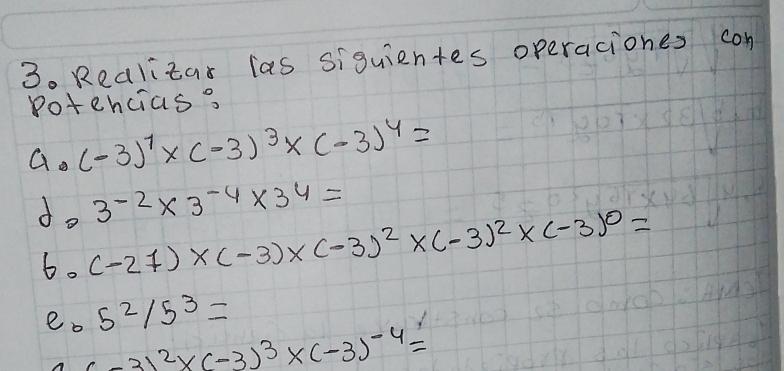 3. Realizar las siguientes operaciones con
potencias:
a. (-3)¹ x (-3)³ x (-3)⁴ =
d. 3⁻² x 3⁻⁴ x 3⁴ =
b. (-27) x (-3) x (-3)² x (-3)² x (-3)⁰ =
e. 5² / 5³ =
(-3)² x (-3)³ x (-3)⁻⁴ =